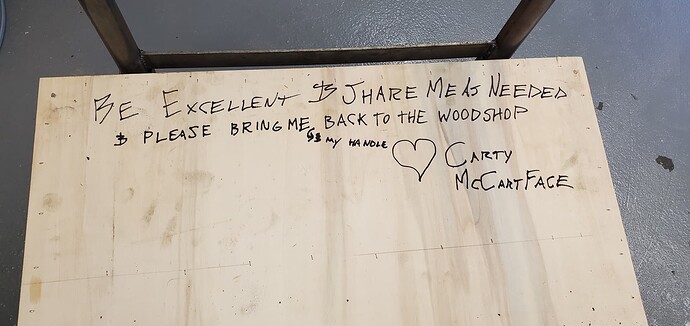 BE EXCELLENT & SHARE ME AS NEEDED
& PLEASE BRING ME BACK TO THE WOODSHOP
& MY HANDLE
♡ CARTY
McCARTFACE